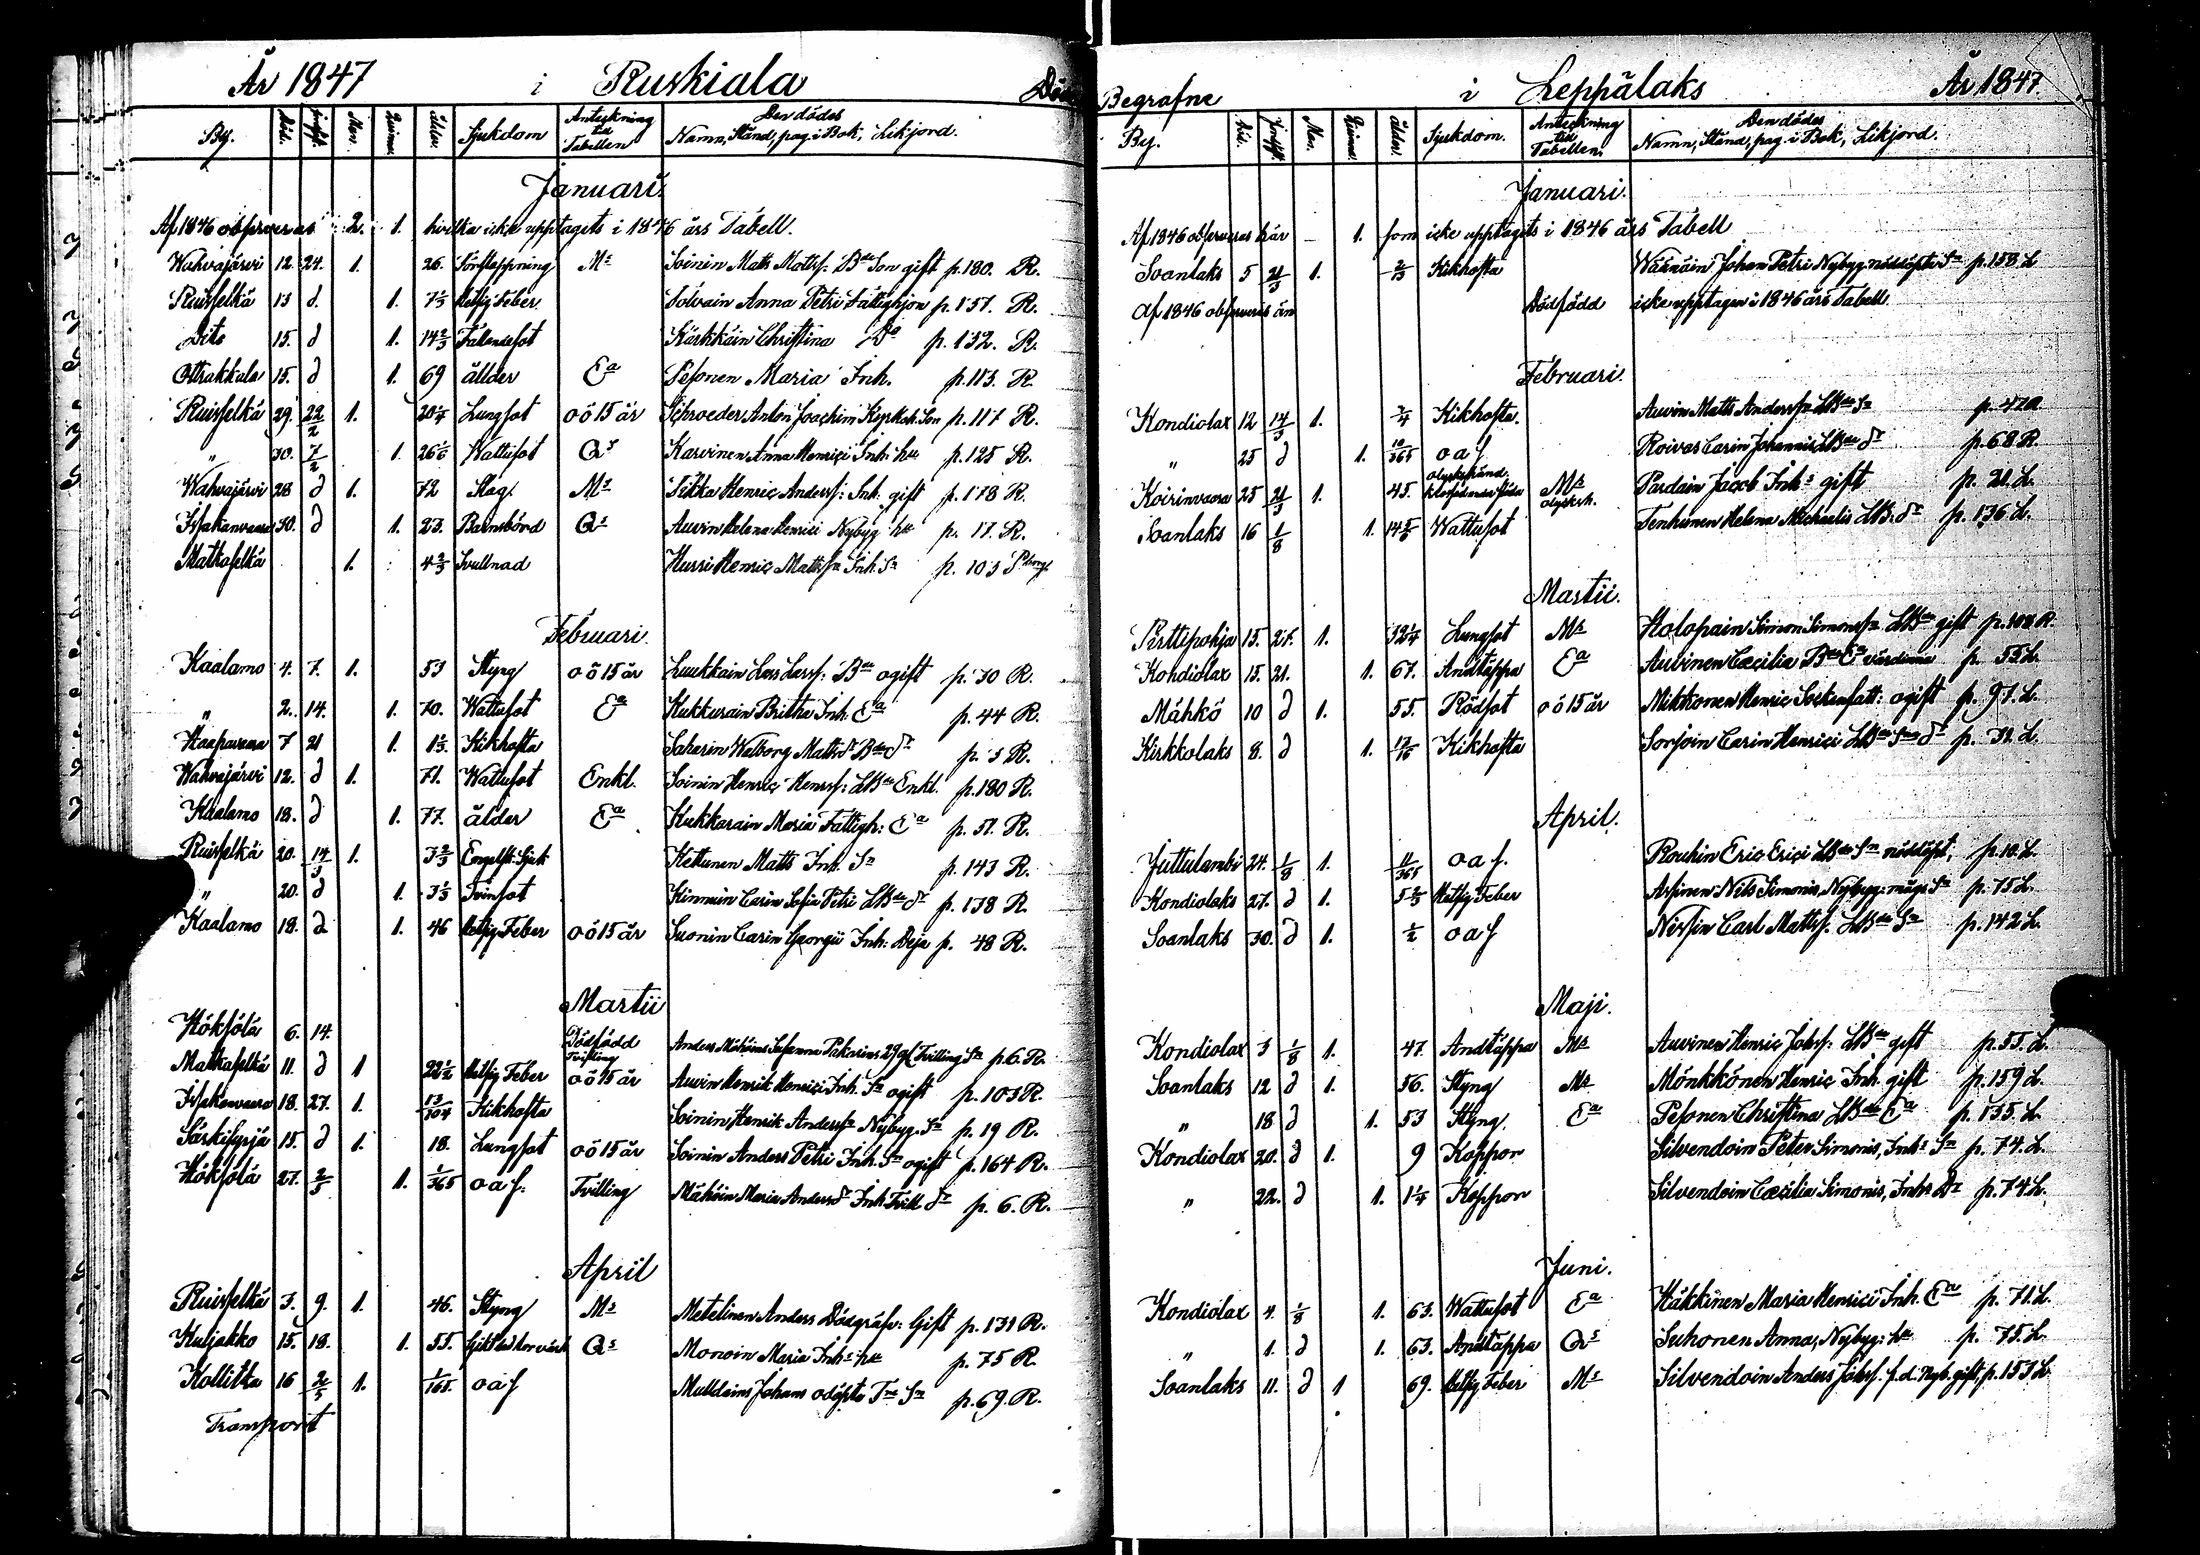 År 1847 i Ruskiala Döde
By. Död. Jordf. Men. Quinn. Ålder. Sjukdom Anteckning till Tabellen Den dödes Namn, Stånd, pag. i Bok, Likjord.
Januari.
Af 1846 observeras 2. 1. hvilka icke upptagets i 1846 års Tabell.
Wahvajärvi 12. 24. 1. 26. Ms Soinin Matts Mattsf: Bde Son gift p. 180. R.
Ruisselkä 13 d. 1. 7 1/3 Hetsig Feber Solvain Anna Petri Fattighjon p. 151. R.
Dito 15. d 1. 14 2/3 Fallandesot Kärkkäin Christina Do p. 132. R.
Otrakkala 15. d 1. 69 ållder Ea Pesonen Maria Inh. p. 113. R.
Ruisselkä 29. 22/2 1. 20 1/4 Lungsot o ö 15 år Schroeder Anton Joachim Kyrkoh. Son p. 117 R.
" 30. 7/2 1. 26 1/6 Wattusot Qs Karvinen Anna Henrici Inh: hu p. 125 R.
Wahvajärvi 28 d 1. 72 Slag. Ms Sikka Henric Andersf: Inh. gift p. 178 R.
Issakanvaara 30. d 1. 23. Barnsbörd Qs Auvin Helena Henrici Nybyg. hu p. 17. R.
Matkaselkä 1. 4 2/3 Svullnad Hurri Henric Mattsn Inh Sn p. 103
Februari.
Kaalamo 4. 7. 1. 53 Styng o ö 15 år Luukkain Lars Larsf: Bde ogift p. 30 R.
" 2. 14. 1. 70. Wattusot Ea Kukkurain Britha Inh. Ea p. 44 R.
Haapavaara 7 21 1 1 1/3. Kikhosta Saharin Walborg Mattsdr Bde dr p. 3 R.
Wahvajärvi 12. d 1. 71. Wattusot Enkl. Soinin Henric Henrsf: LBde Enkl. p. 180 R.
Kaalamo 18. d 1. 77. ålder Ea Kukkarain Maria Fattigh: Ea p. 51. R.
Ruisselkä 20. 14/3 1. 3 2/3 Engelsk: Sjuk Kettunen Matts Inh: Sn p. 143 R.
" 20. d 1. 3 1/3 Tvinsot Kinnuin Carin Sofia Petri LBde dr p. 138 R.
Kaalamo 18. d 1. 46 Hetsig Feber o ö 15 år Suonin Carin Georgii Inh: Deja p. 48 R.
Martii
Hökjölä 6. 14. Dödfödd Tvilling Anders Mähöins Susanna Pakarins Tvilling Sn p. 6. R.
Matkaselkä 11. d 1 22 1/2 Hetsig Feber o ö 15 år Auvin Henrik Henrici Inh. Sn ogift p. 103 R.
Issakanvaara 18. 27. 1. 13/104 Kikhosta Soinin Henrik Anderssn Nybyg. Sn p. 19 R.
Särkisyrjä 15. d 1. 18. Lungsot o ö 15 år Soinin Anders Petri Inh. Sn ogift p. 164 R.
Hökjölä 27. 2/5 1. 1/365 o a s. Tvilling Mähöin Maria Andersdr Inh Tvill dr p. 6. R.
April
Ruisselkä 3. 9. 1. 46. Styng Ms Metelinen Anders Dödgräfv: Gift p. 131 R.
Kuljakko 15. 18. 1. 55. Qs Monoin Maria Inhs hu p. 75 R.
Kollitta 16 2/5 1. 1/365. o a s Mulldains Johans odöpta Sn p. 69. R.
Transport
Begrafne i Leppälaks År 1847
By. Död. Jordf. Men. Quinnor. Ålder. Sjukdom. Anteckning till Tabellen. Den dödes Namn, Stånd, pag. i Bok, Likjord.
Januari.
Af 1846 observeras här – 1. som icke upptagits i 1846 års Tabell
Soanlaks 5 21/3 1. 2/13 Kikhosta Wäänäin Johan Petri Nybyg. nöddöpte Sn p. 158. L
Af 1846 observeras än Dödfödd icke upptagen i 1846 års Tabell.
Februari.
Kondiolax 12 14/3 1. 3/4 Kikhosta. Auvin Matts Anderssn LBde Sn p. 47 a
" 25 d 1. 10/365 o a s Roivas Carin Johannis LBde dr p. 68 R.
Koirinvaara 25 21/3 1. 45. olyckshänd. Ms olycksh. Pardain Jacob Inhs gift p. 21. L.
Soanlaks 16 1/8 1. 14 5/6 Wattusot Tenhunen Helena Michaelis LB. dr p. 136 L.
Martii.
Pirttipohja 15. 21. 1. 32 1/4 Lungsot Ms Holopain Simon Simonsn LBde gift p. 108 R
Kondiolax 15. 21. 1. 67. Andtäppa Ea Auvinen Cæcilia Bde Ea värdinna p. 55 L.
Mähkö 10 d 1. 55. Rödsot o ö 15 år Mikkonen Henric Sockenfatt: ogift p. 97. L.
Kirkkolaks 8. d 1. Kikhosta Sorsoin Carin Henrici LBde dr p. 31. L.
April.
Juttulambi 24. 1/8 1. 11/365 o a s. Rouhin Eric Erici LBde Sn nöddöpt, p. 10. L.
Kondiolaks 27. d 1. 5 2/3 Hetsig Feber Arfinen Nils Simonis, Nybyg: mågs Sn p. 75 L.
Soanlaks 30. d 1. 1/2 o a s Nissin Carl Mattsf. LBde Sn p. 142 L.
Maji.
Kondiolax 3 1/8 1. 47. Andtäppa Ms Auvinen Henric Johsf: LBde gift p. 55. L.
Soanlaks 12 d 1. 56. Styng Ms Mönkkönen Henric Inh. gift p. 159 L.
" 18 d 1. 53 Styng. Ea Pesonen Christina LBde Ea p. 135. L.
Kondiolax 20. d 1. 9 Koppor Silvendoin Peter Simonis, Inhs Sn p. 74. L.
" 22. d 1. 1 1/4 Koppor Silvendoin Cæcilia Simonis, Inhs Dr p. 74 L.
Juni.
Kondiolax 4. 1/8 1. 63. Wattusot Ea Häkkinen Maria Henrici Inh. Ea p. 71. L.
" 1. d 1. 63. Andtäppa Qs Suhonen Anna, Nybyg: hu p. 75. L.
Soanlaks 11. d 1 69. Hetsig Feber Ms Silvendoin Anders Johsf. f.d. Nyb. gift, p. 153 L